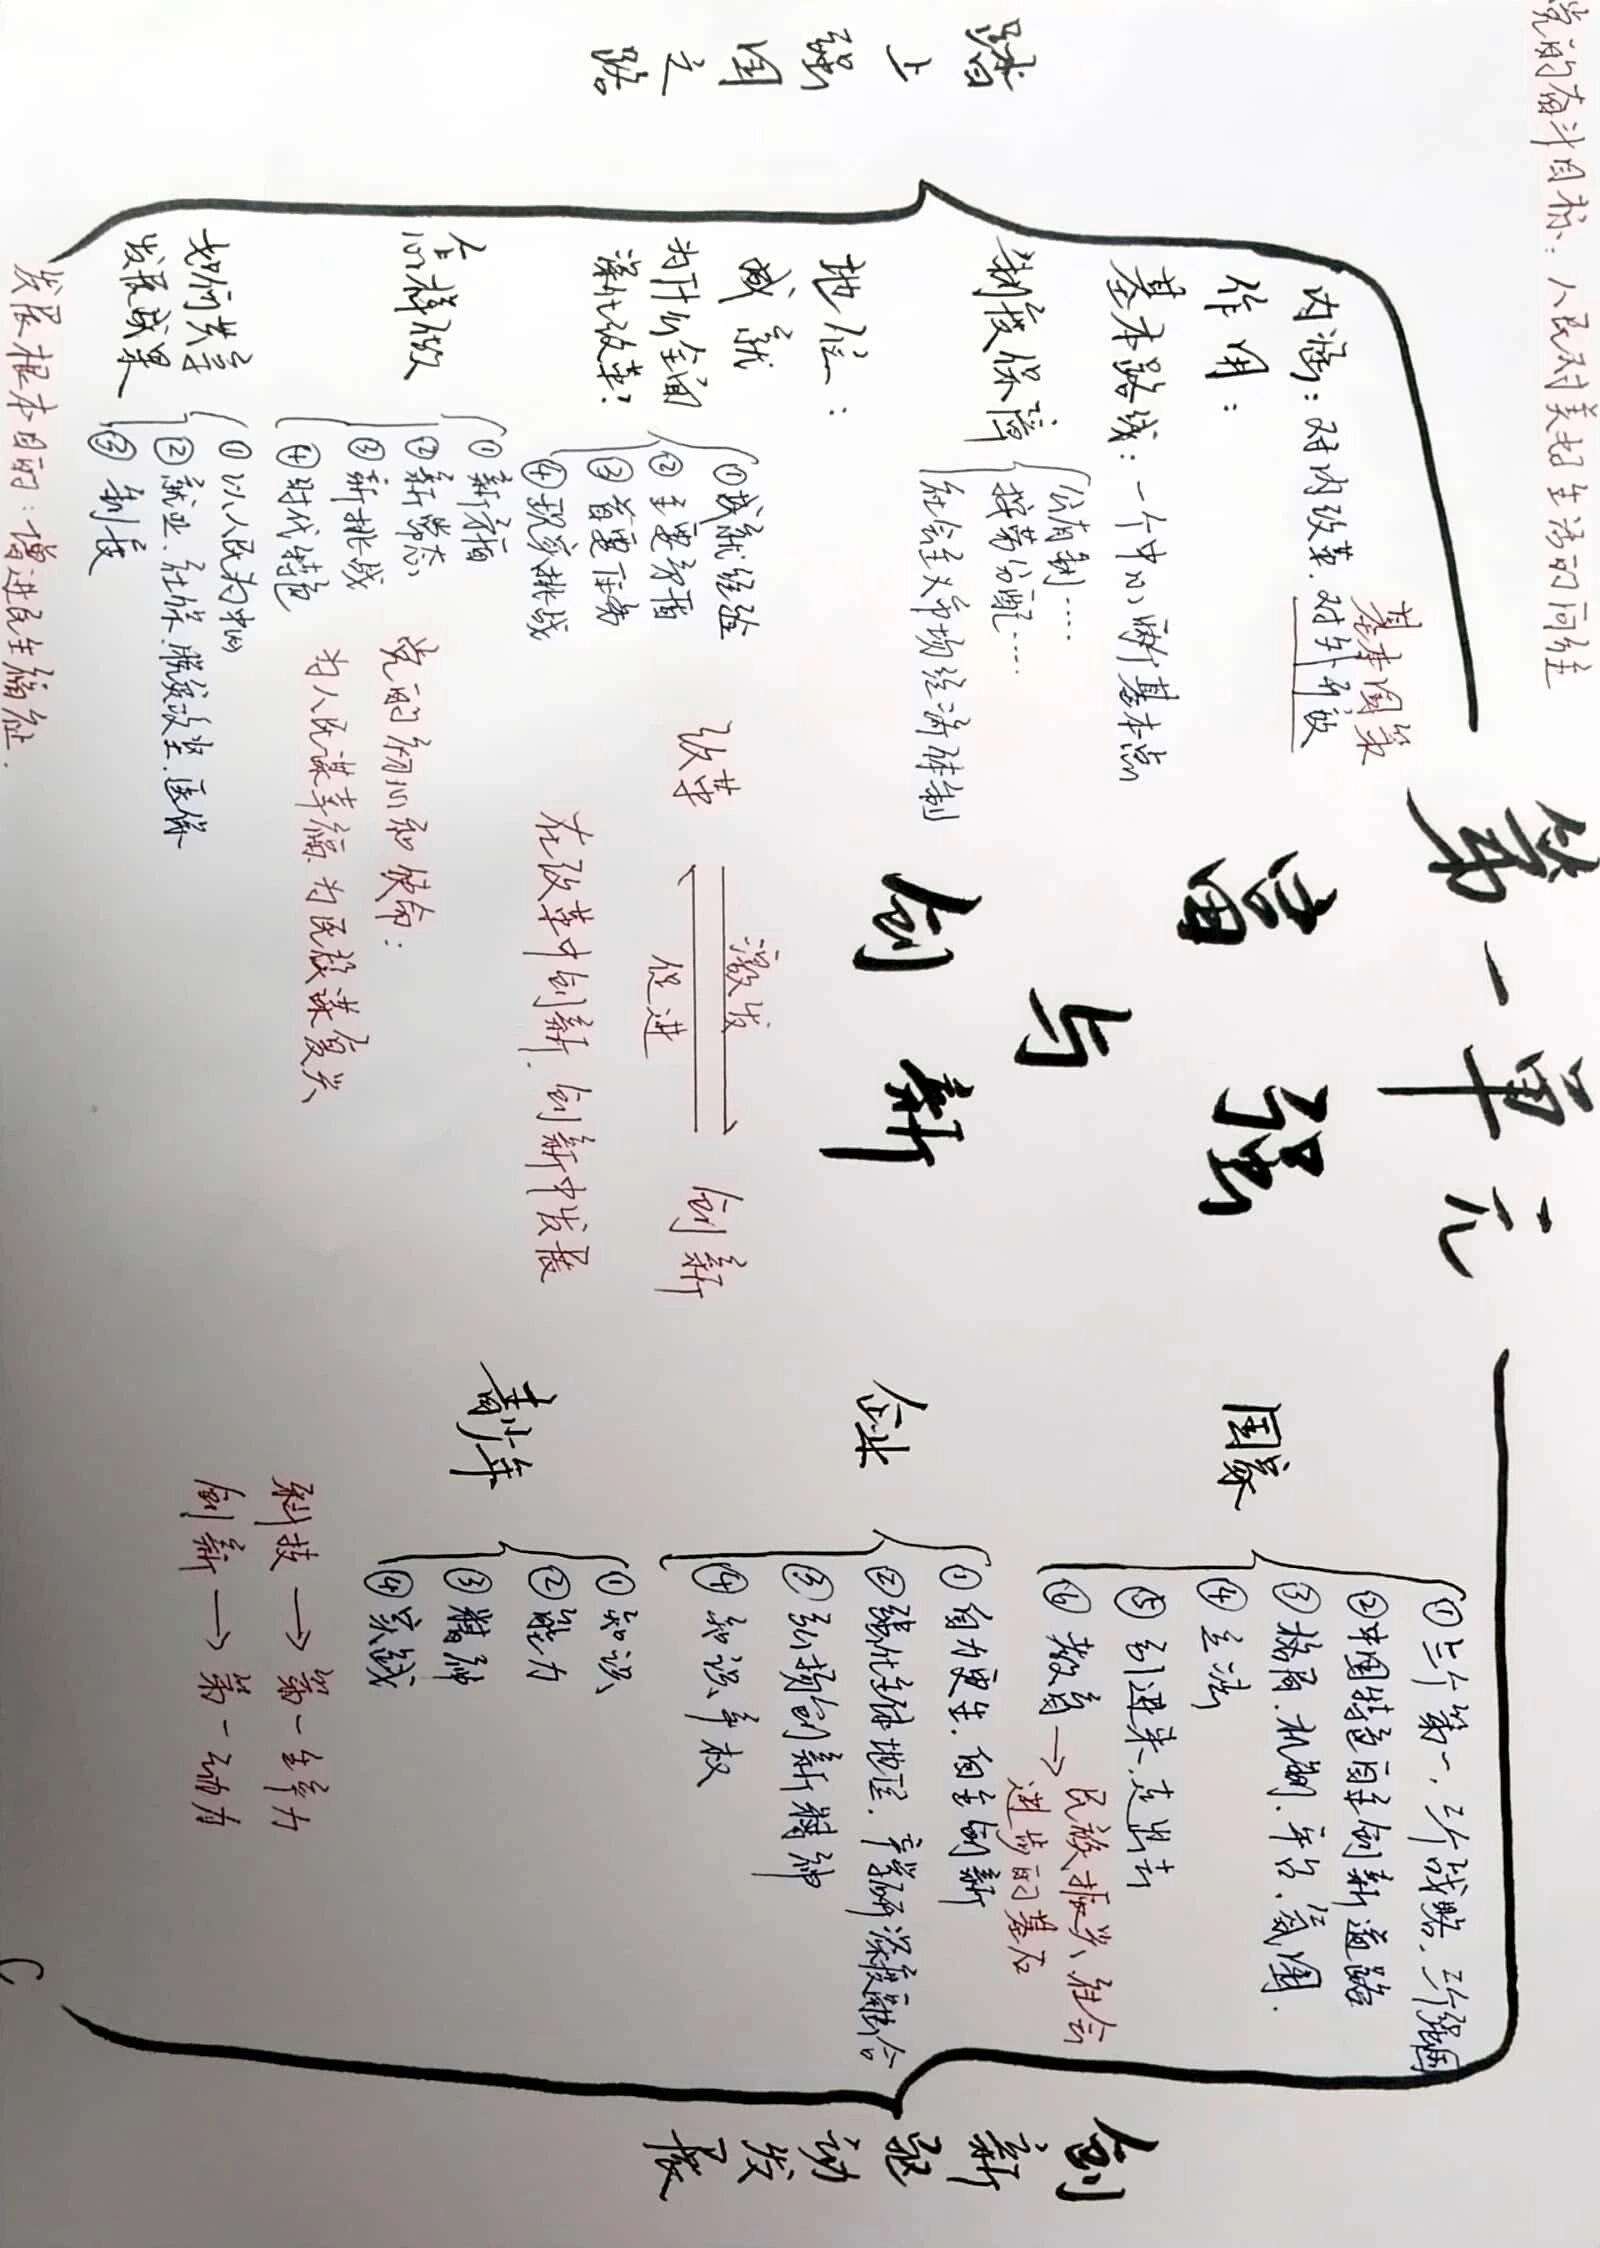 党的奋斗目标：人民对美好生活的向往
第一单元
富强
与
创新
踏上强国之路
内涵：对内改革．对外开放
基本国策
作用：
基本路线：一个中心两个基本点
制度保障
公有制……
按劳分配……
社会主义市场经济体制
地位：
成就
为什么全面
深化改革？
①成就经验
②主要矛盾
③首要任务
④现实挑战
怎样做
①新矛盾
②新常态
③新挑战
④时代特色
如何共享
发展成果
①以人民为中心
②就业．社保．脱贫攻坚．医保
③制度
发展根本目的：增进民生福祉．
改革
激发
促进
创新
在改革中创新．创新中发展
党的初心和使命：
为人民谋幸福．为民族谋复兴
国家
①三个第一．三个战略．三个强国
②中国特色自主创新道路
③格局．机制．平台．氛围．
④立法
⑤引进来．走出去
⑥教育→民族振兴、社会
进步的基石
企业
①自力更生．自主创新
②强化主体地位．产学研深度融合
③弘扬创新精神
④知识产权
青少年
①知识
②能力
③精神
④实践
科技→第一生产力
创新→第一动力
创新驱动发展